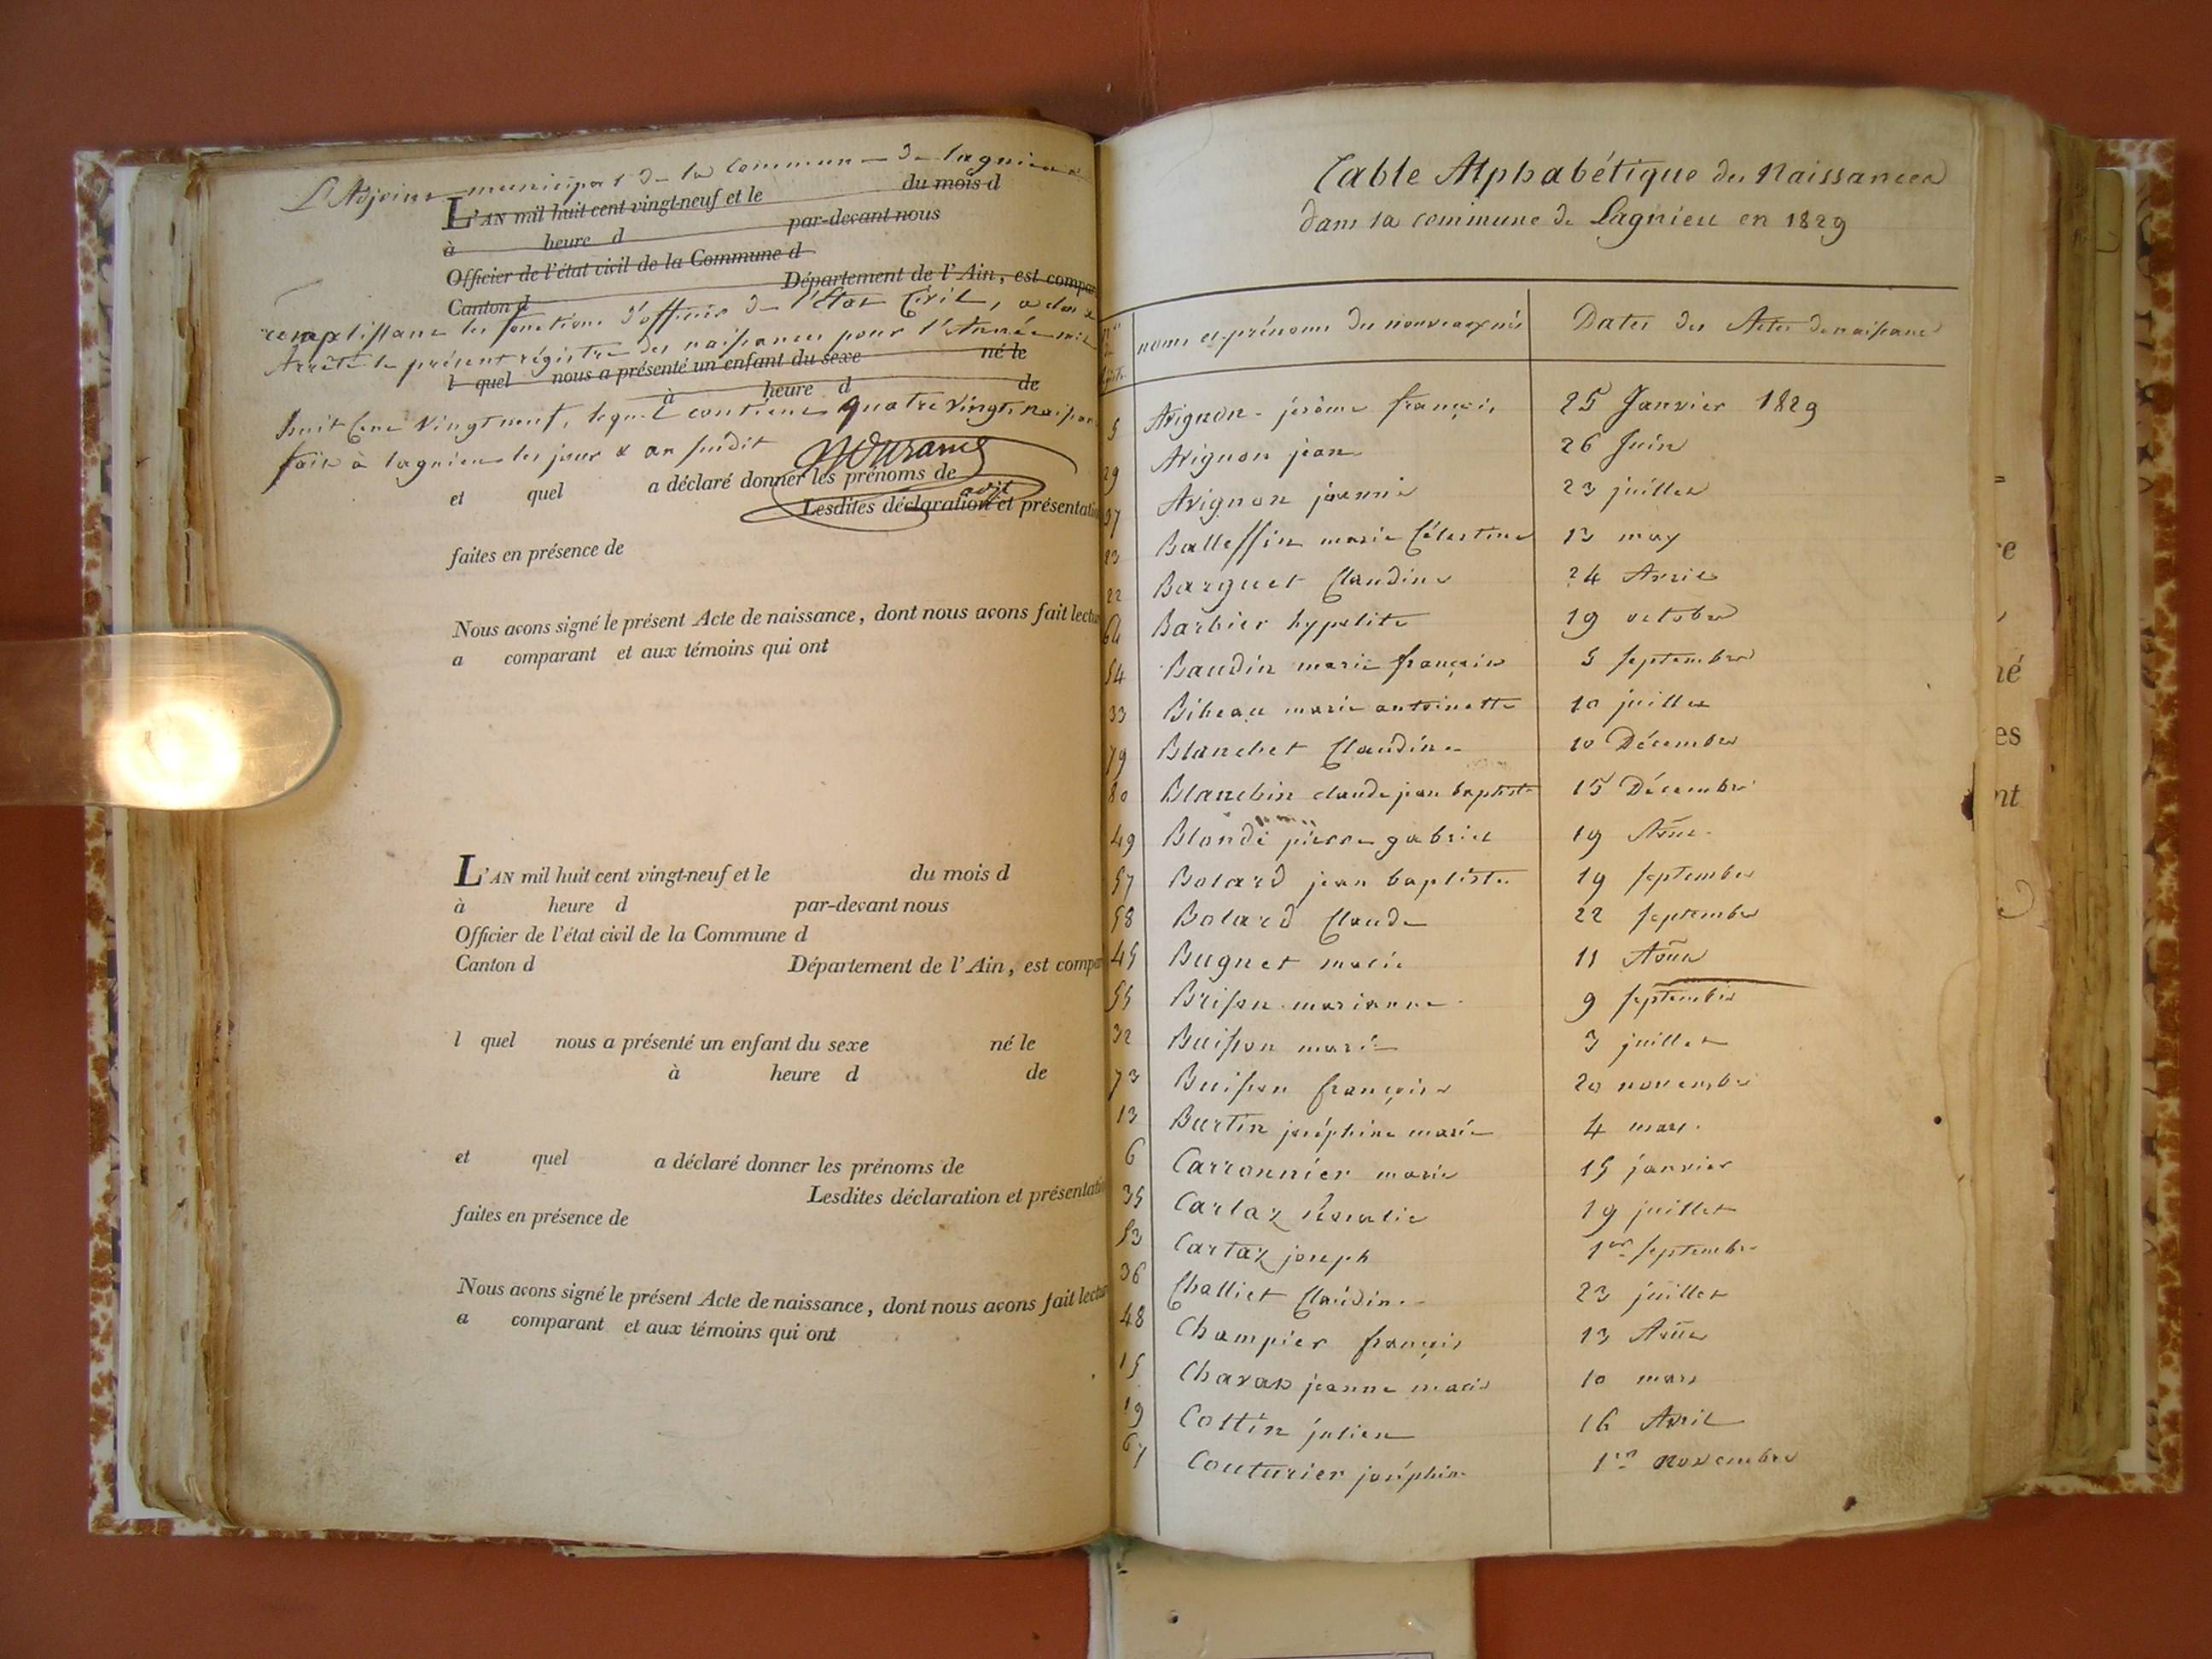 L'Adjoint municipal de la commune de lagnieu
L'AN mil huit cent vingt-neuf et le du mois d
à heure d par-devant nous
Officier de l'état civil de la Commune d
Canton d Département de l'Ain, est compa
remplissant les fonctions d'officier de l'État Civil, a clos &
Arrêté le présent régistre des naissances pour l'Année mil
l quel nous a présenté un enfant du sexe né le
à heure d de
huit Cent Vingt neuf, lequel contient quatre vingt naissan
fait à lagnieu les jour & an susdit
et quel a déclaré donner les prénoms de
Lesdites déclaration et présentati
faites en présence de
Nous avons signé le présent Acte de naissance, dont nous avons fait lectu
a comparant et aux témoins qui ont
L'AN mil huit cent vingt-neuf et le du mois d
à heure d par-devant nous
Officier de l'état civil de la Commune d
Canton d Département de l'Ain, est compa
l quel nous a présenté un enfant du sexe né le
à heure d de
et quel a déclaré donner les prénoms de
Lesdites déclaration et présentati
faites en présence de
Nous avons signé le présent Acte de naissance, dont nous avons fait lectu
a comparant et aux témoins qui ont
Table Alphabétique des Naissances
dans la commune de Lagnieu en 1829
noms et prénoms des nouveaux nés Dates des Actes de naissance
5 Avignon jérôme françois 25 Janvier 1829
29 Avignon jean 26 Juin
37 Avignon jeannie 23 juillet
23 Balleffin marie Célestine 13 may
22 Barquet Claudine 24 Avril
64 Barbier hypolite 19 octobre
54 Baudin marie françoise 5 septembre
33 Bibeau marie antoinette 10 juillet
79 Blanchet Claudine 10 Décembre
80 Blanchin claude jean baptiste 15 Décembre
49 Blondé pierre gabriel 19 Aout
57 Bolard jean baptiste 19 septembre
58 Bolard Claude 22 septembre
45 Bugnet marie 11 Aout
55 Brison marianne 9 septembre
32 Buisson marie 3 juillet
73 Buisson françoise 20 novembre
13 Burtin joséphine marie 4 mars
6 Carronnier marie 15 janvier
35 Cartaz Rosalie 19 juillet
53 Cartaz joseph 1er septembre
36 Challiet Claudine 23 juillet
48 Champier françois 13 Aout
15 Charas jeanne marie 10 mars
19 Cottin julien 16 Avril
67 Couturier joséphine 1er novembre